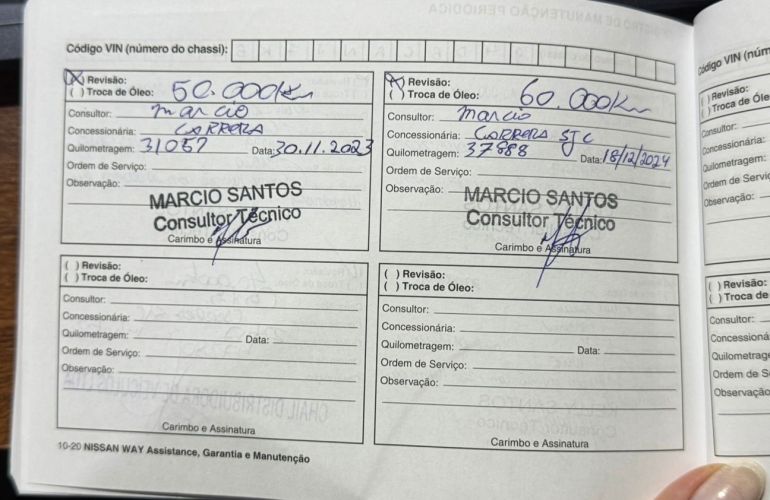 Código VIN (número do chassi):
(X) Revisão: 50.000Km
( ) Troca de Óleo:
Consultor: Marcio
Concessionária: CARRERA
Quilometragem: 31057 Data: 30.11.2023
Ordem de Serviço:
Observação:
MARCIO SANTOS
Consultor Técnico
Carimbo e Assinatura
(X) Revisão: 60.000Km
( ) Troca de Óleo:
Consultor: Marcio
Concessionária: CARRERA SJC
Quilometragem: 37888 Data: 18/12/2024
Ordem de Serviço:
Observação:
MARCIO SANTOS
Consultor Técnico
Carimbo e Assinatura
( ) Revisão:
( ) Troca de Óleo:
Consultor:
Concessionária:
Quilometragem: Data:
Ordem de Serviço:
Observação:
Carimbo e Assinatura
( ) Revisão:
( ) Troca de Óleo:
Consultor:
Concessionária:
Quilometragem: Data:
Ordem de Serviço:
Observação:
Carimbo e Assinatura
10-20 NISSAN WAY Assistance, Garantia e Manutenção
Código VIN (núm
( ) Revisão:
( ) Troca de Óle
Consultor:
Concessionária:
Quilometragem:
Ordem de Servi
Observação:
( ) Revisão:
( ) Troca de
Consultor:
Concessioná
Quilometrag
Ordem de S
Observação